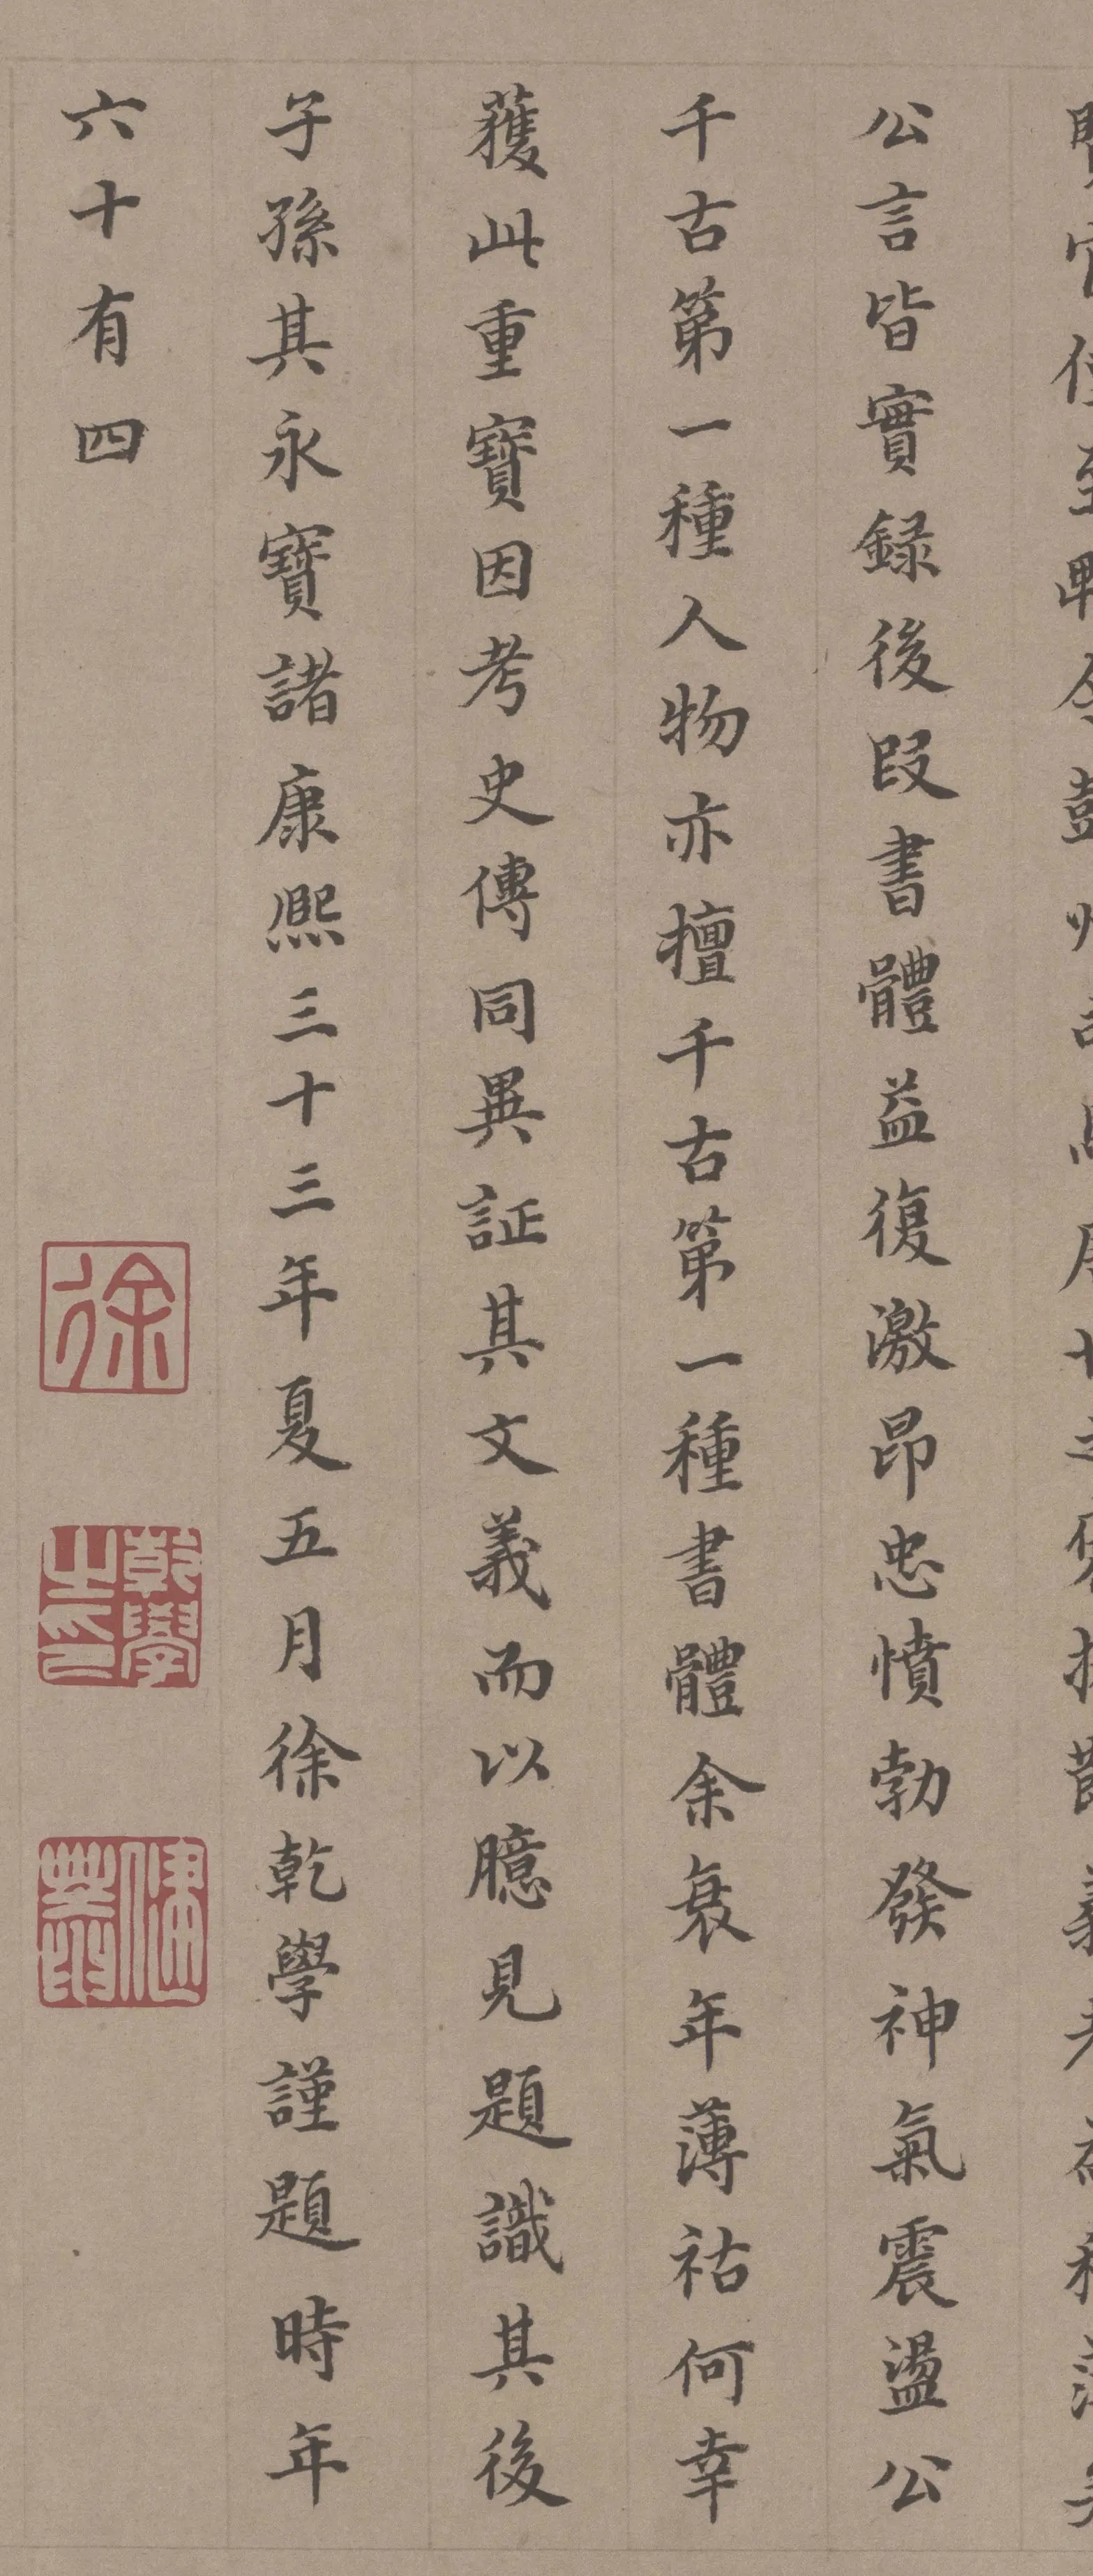 公言皆實録後段書體益復激昂忠憤勃發神氣震盪公
千古第一種人物亦擅千古第一種書體余衰年薄祜何幸
獲此重寶因考史傳同異証其文義而以臆見題識其後
子孫其永寶諸康熙三十三年夏五月徐乾學謹題時年
六十有四
徐
乾學之印